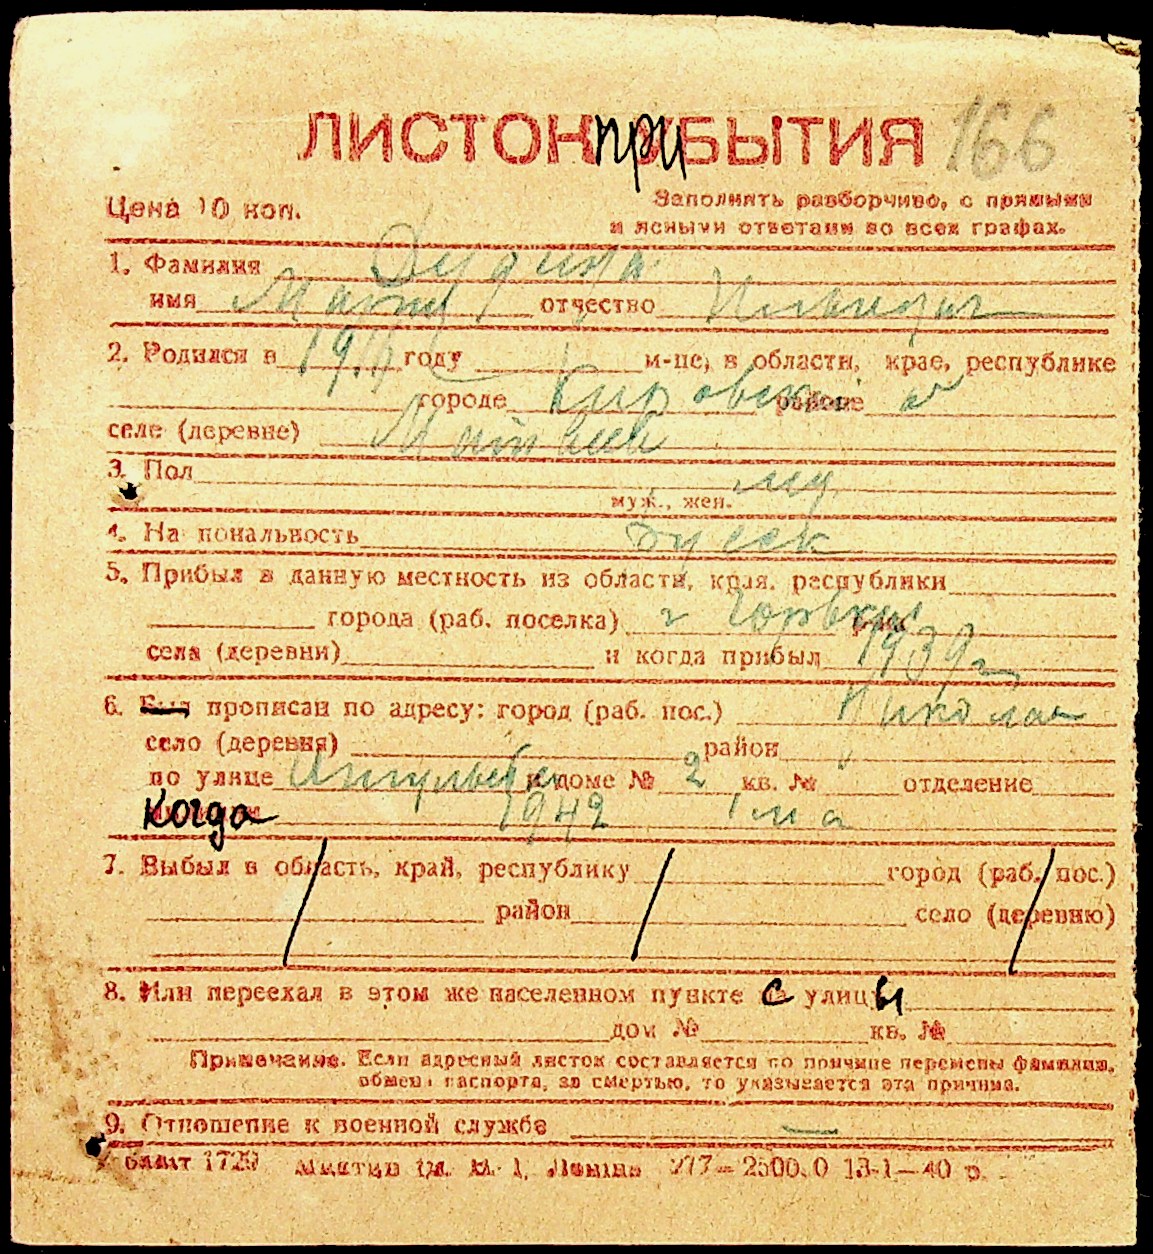 ЛИСТОК ПРИБЫТИЯ 166
Цена 10 коп.
Заполнять разборчиво, с прямыми
и ясными ответами во всех графах.
1. Фамилия Дудина
имя отчество
2. Родился в году м-це, в области, крае, республике
городе Кировской районе
селе (деревне)
3. Пол
муж., жен.
4. Национальность русск
5. Прибыл в данную местность из области, края, республики
города (раб. поселка) г Горький
села (деревни) и когда прибыл 1939 г
6. прописан по адресу: город (раб. пос.) Николаев
село (деревня) район
по улице и доме № 2 кв. № отделение
когда 1942 1 ма
7. Выбыл в область, край, республику город (раб. пос.)
район село (деревню)
8. Или переехал в этом же населенном пункте с улицы
дом № кв. №
Примечание. Если адресный листок составляется по причине перемены фамилии,
обмена паспорта, за смертью, то указывается эта причина.
9. Отношение к военной службе —
1729 Ленина 277—2500.0 13-1—40 р.